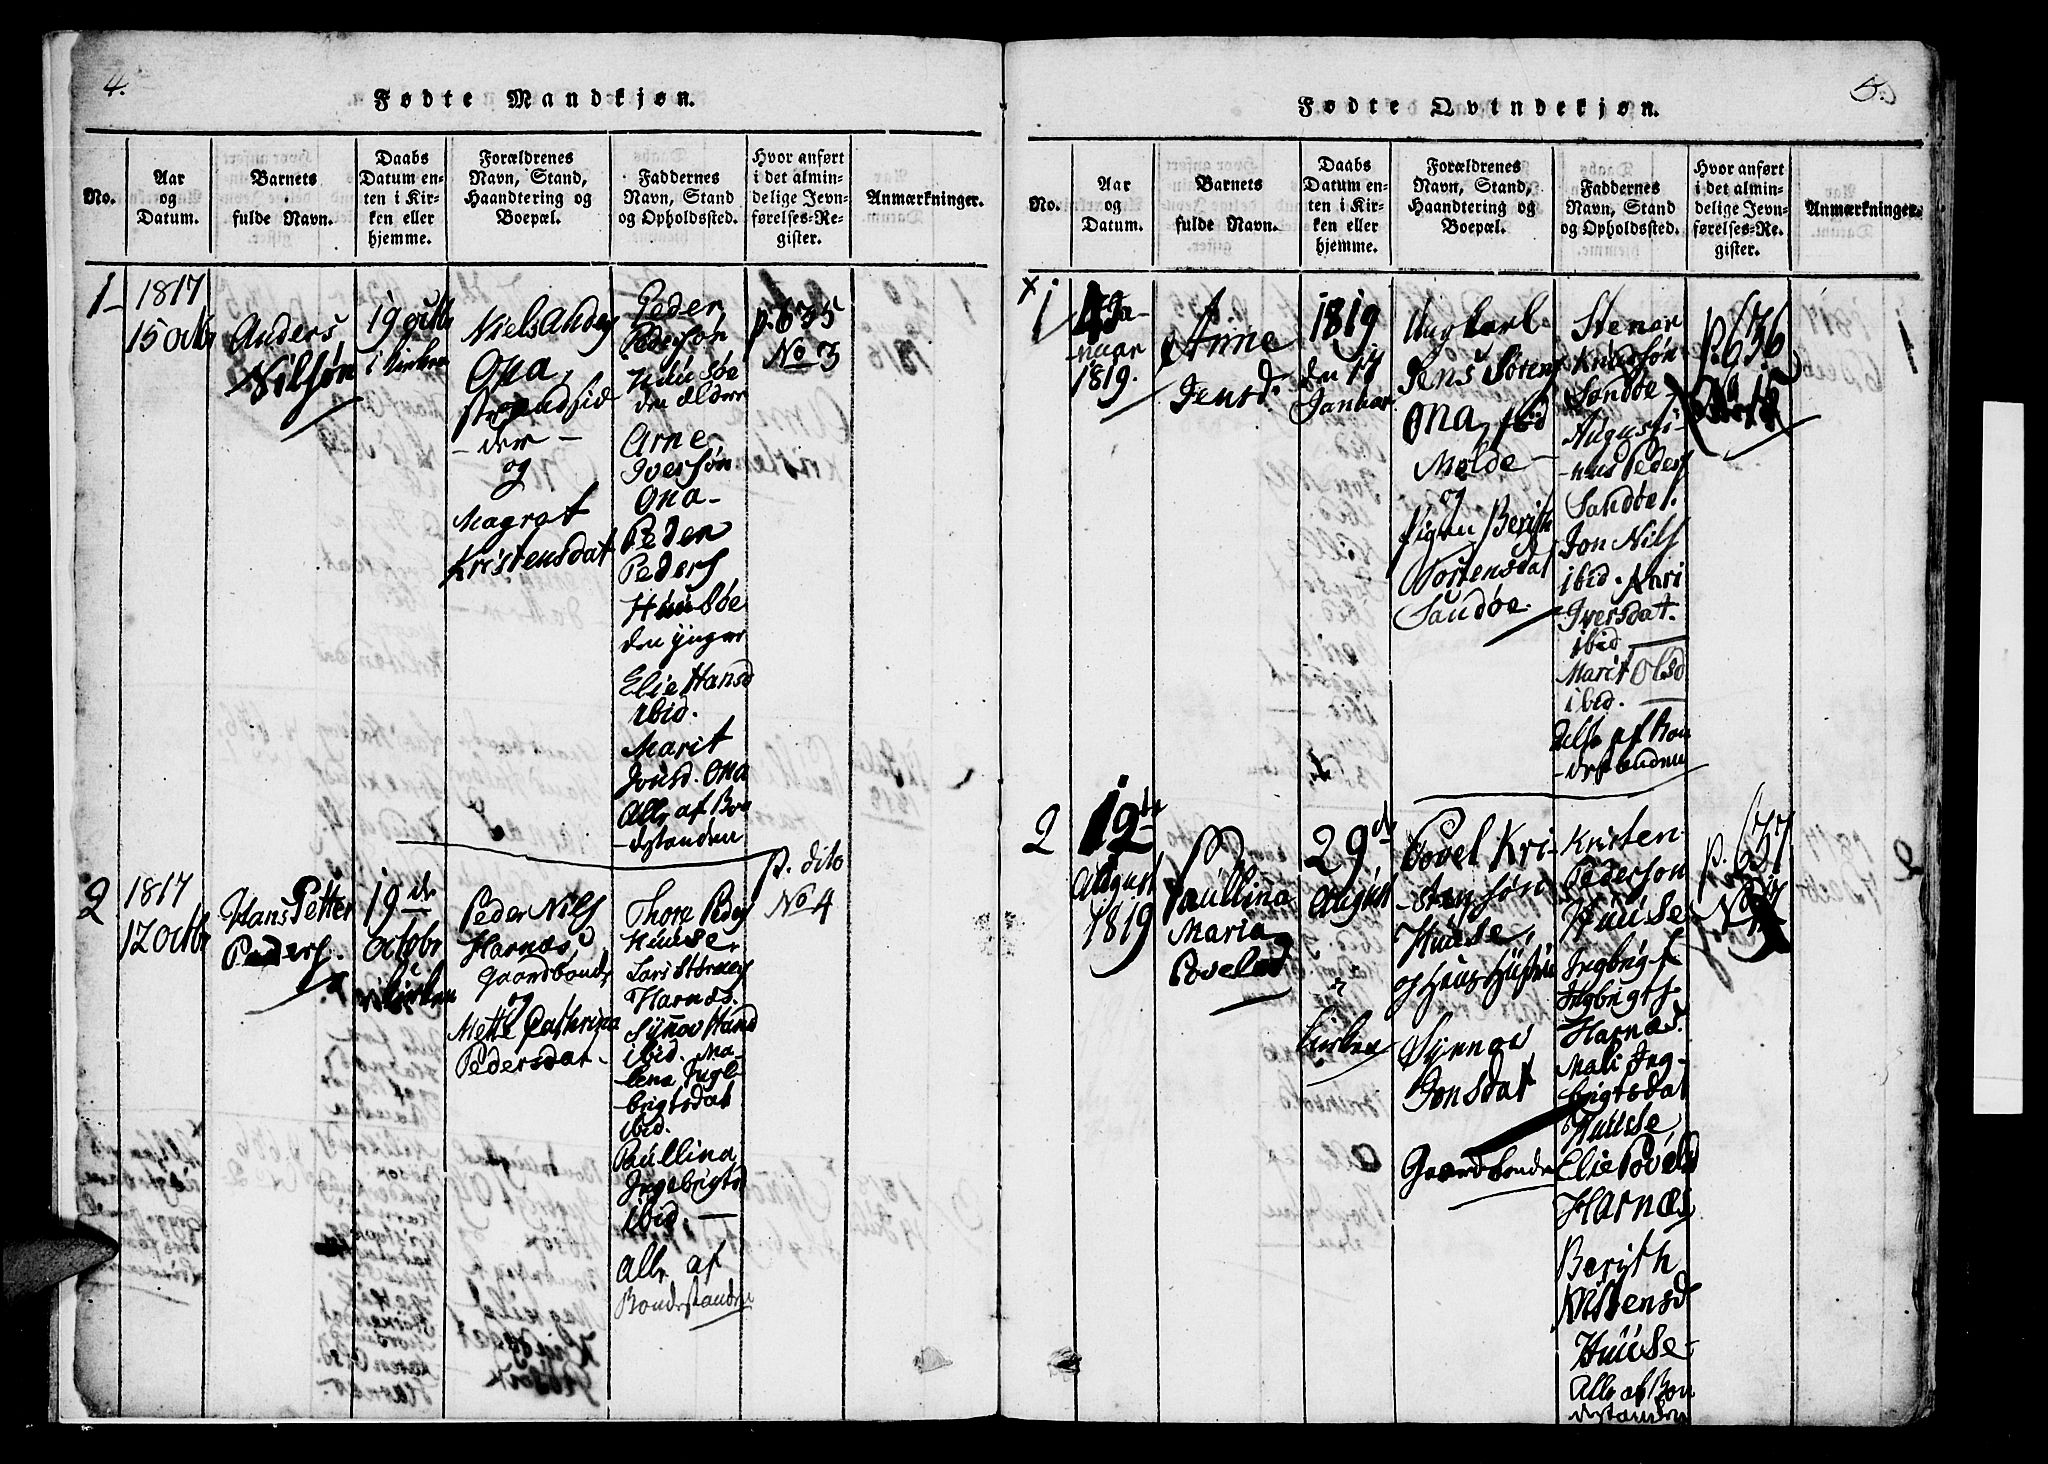 4.
Fødte Mandkjøn.
No.
Aar
og
Datum.
Barnets
fulde Navn.
Daabs
Datum en-
ten i Kir-
ken eller
hjemme.
Forældrenes
Navn, Stand,
Haandtering og
Boepæl.
Faddernes
Navn, Stand
og Opholdssted.
Hvor anført
i det almin-
delige Jevn-
førelses-Re-
gister.
Anmærkninger.
1
1817
15 octbr
Anders
Nilsøn
19 octbr
i Kirken
Niels Anders
Ona,
Strandsid
der
og
Magrat
Kristensdat
Peder
Pedersøn
Huusøe
den ældre
Arne
Iversøn
Ona
Peder
Peders
Huusøe
den yngre
Elie Hansd
ibid.
Marit
Jonsd. Ona
Alle af Bon
destanden
p. 635
No 3
2
1817
12 octbr
Hans Petter
Peders.
19 de
octobr
Kirken
Peder Nils
Harnæs
Gaardbonde
og
Mette Cathrina
Pedersdat
Thore Peders
Huuse
Lars
Harnæs.
Synnov Hansd
ibid. Ma-
lena Ingl-
brigtsdat
ibid.
Paullina
Ingebrigtsd
ibid.
Alle af
Bondestanden
p. dito
No 4
5.
Fødte Qvindekjøn.
No.
Aar
og
Datum.
Barnets
fulde Navn.
Daabs
Datum en-
ten i Kir-
ken eller
hjemme.
Forældrenes
Navn, Stand,
Haandtering og
Boepæl.
Faddernes
Navn, Stand
og Opholdssted.
Hvor anført
i det almin-
delige Jevn-
førelses-Re-
gister.
Anmærkninger.
x 1
Ja-
nuar
1819.
Anne
Jensd.
1819
den 17
Januar
Ungkarl
Jens Sørens
Ona,
Molde
og
Pigen Berith
Tostensdat
Sandøe
Stenar
Knudsøn
Sandøe
Augusti-
nus Peders
Sandøe.
Jon Nils
ibid. Kari
Iversdat.
ibid
Marit Olsd
ibid.
alle af Bon
destanden
p. 636
No 15
2
12te
August
1819
Paullina
Maria
Povelsd
29de
August
i
Kirken
Povel Kri-
stensøn
Huuse,
og Huustrue
Synnøv
Jonsdat
Gaardbonde
Kristen
Pedersøn
Huuse
Ingbrigt
Ingbrigts
Harnæs.
Mali Ing-
brigtsdat
Huuse
Elie Povelsd
Harnæs
Berith
Kristensd
Huuse
Alle af Bon
destanden
p. 637
No